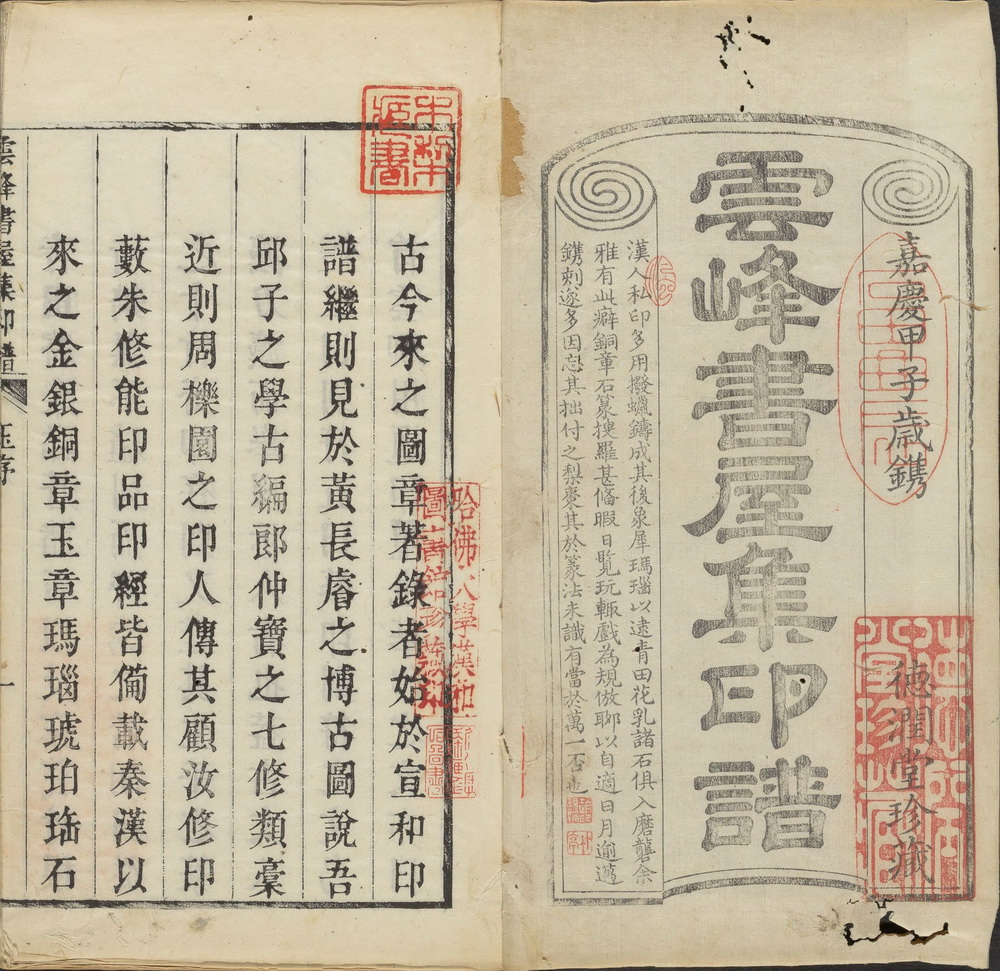 嘉慶甲子歲鐫
德潤堂珍藏
雲峰書屋集印譜
漢人私印多用撥蠟鑄成其後象犀瑪瑙以逮青田花乳諸石俱入磨礱余
雅有此癖銅章石篆搜羅甚備暇日覽玩輒戲為規倣聊以自適日月逾邁
鐫刻遂多因忘其拙付之梨棗其於篆法未識有當於萬一否也
古今來之圖章著錄者始於宣和印
譜繼則見於黃長睿之博古圖說吾
邱子之學古編郎仲寶之七修類稾
近則周櫟園之印人傳其顧汝修印
藪朱修能印品印經皆僃載秦漢以
來之金銀銅章玉章瑪瑙琥珀珤石
雲峰書屋集印譜
序
一
哈佛大學漢和
圖書館珍藏印